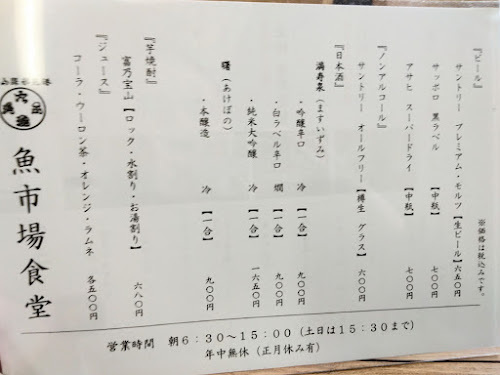 ※価格は税込みです。
『ビール』
サントリー プレミアム・モルツ【生ビール】六五〇円
サッポロ 黒ラベル 【中瓶】 七〇〇円
アサヒ スーパードライ 【中瓶】 七〇〇円
『ノンアルコール』
サントリー オールフリー【樽生 グラス】 六〇〇円
『日本酒』
満寿泉(ますいずみ)
・吟醸辛口 冷 【一合】 九〇〇円
・白ラベル辛口 燗 【一合】 九〇〇円
・純米大吟醸 冷 【一合】 一六五〇円
曙(あけぼの)
・本醸造 冷 【一合】 九〇〇円
『芋焼酎』
富乃宝山【ロック・水割り・お湯割り】 六八〇円
『ジュース』
コーラ・ウーロン茶・オレンジ・ラムネ 各五〇〇円
魚市場食堂
営業時間 朝6:30~15:00(土日は15:30まで)
年中無休(正月休み有)